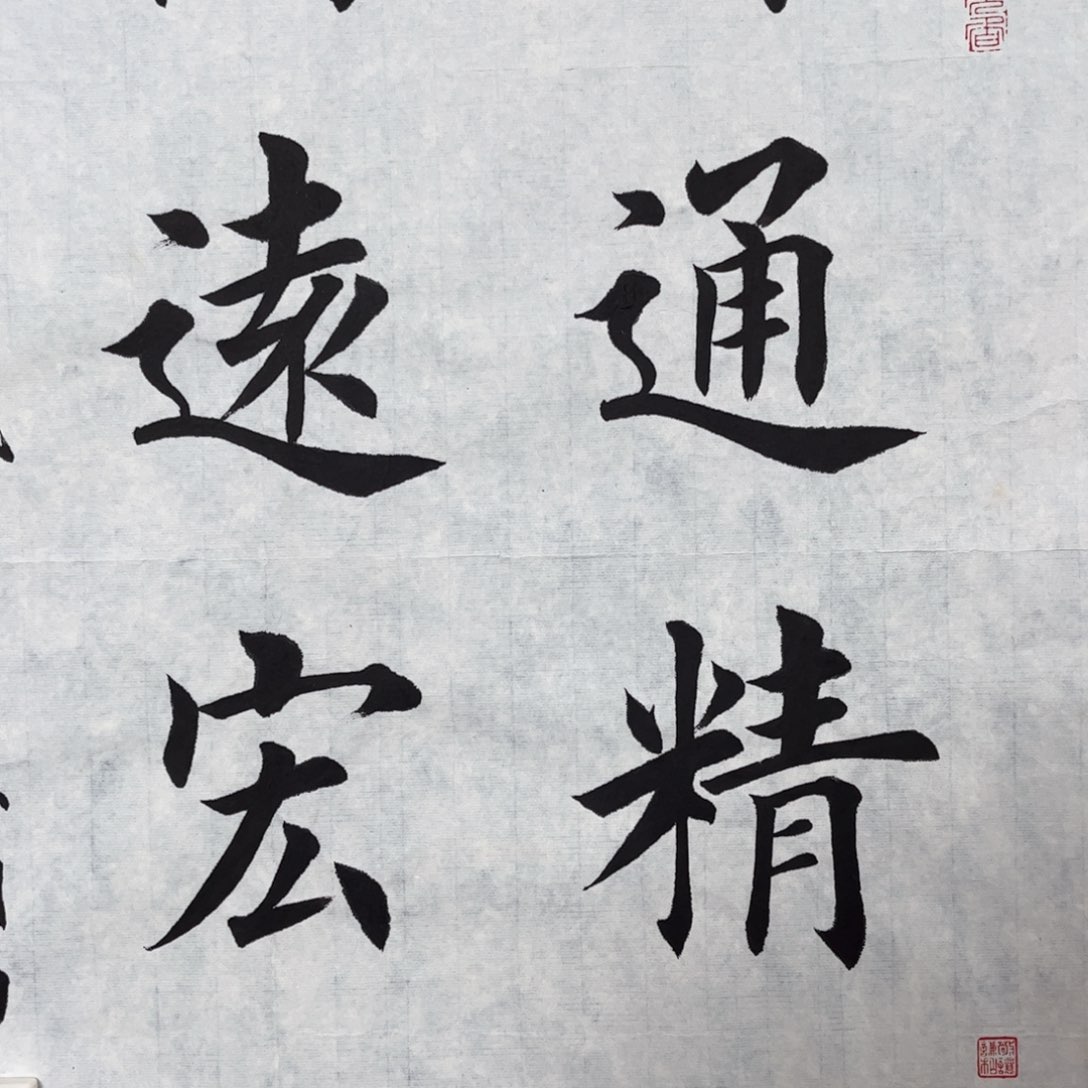 通精
遠宏